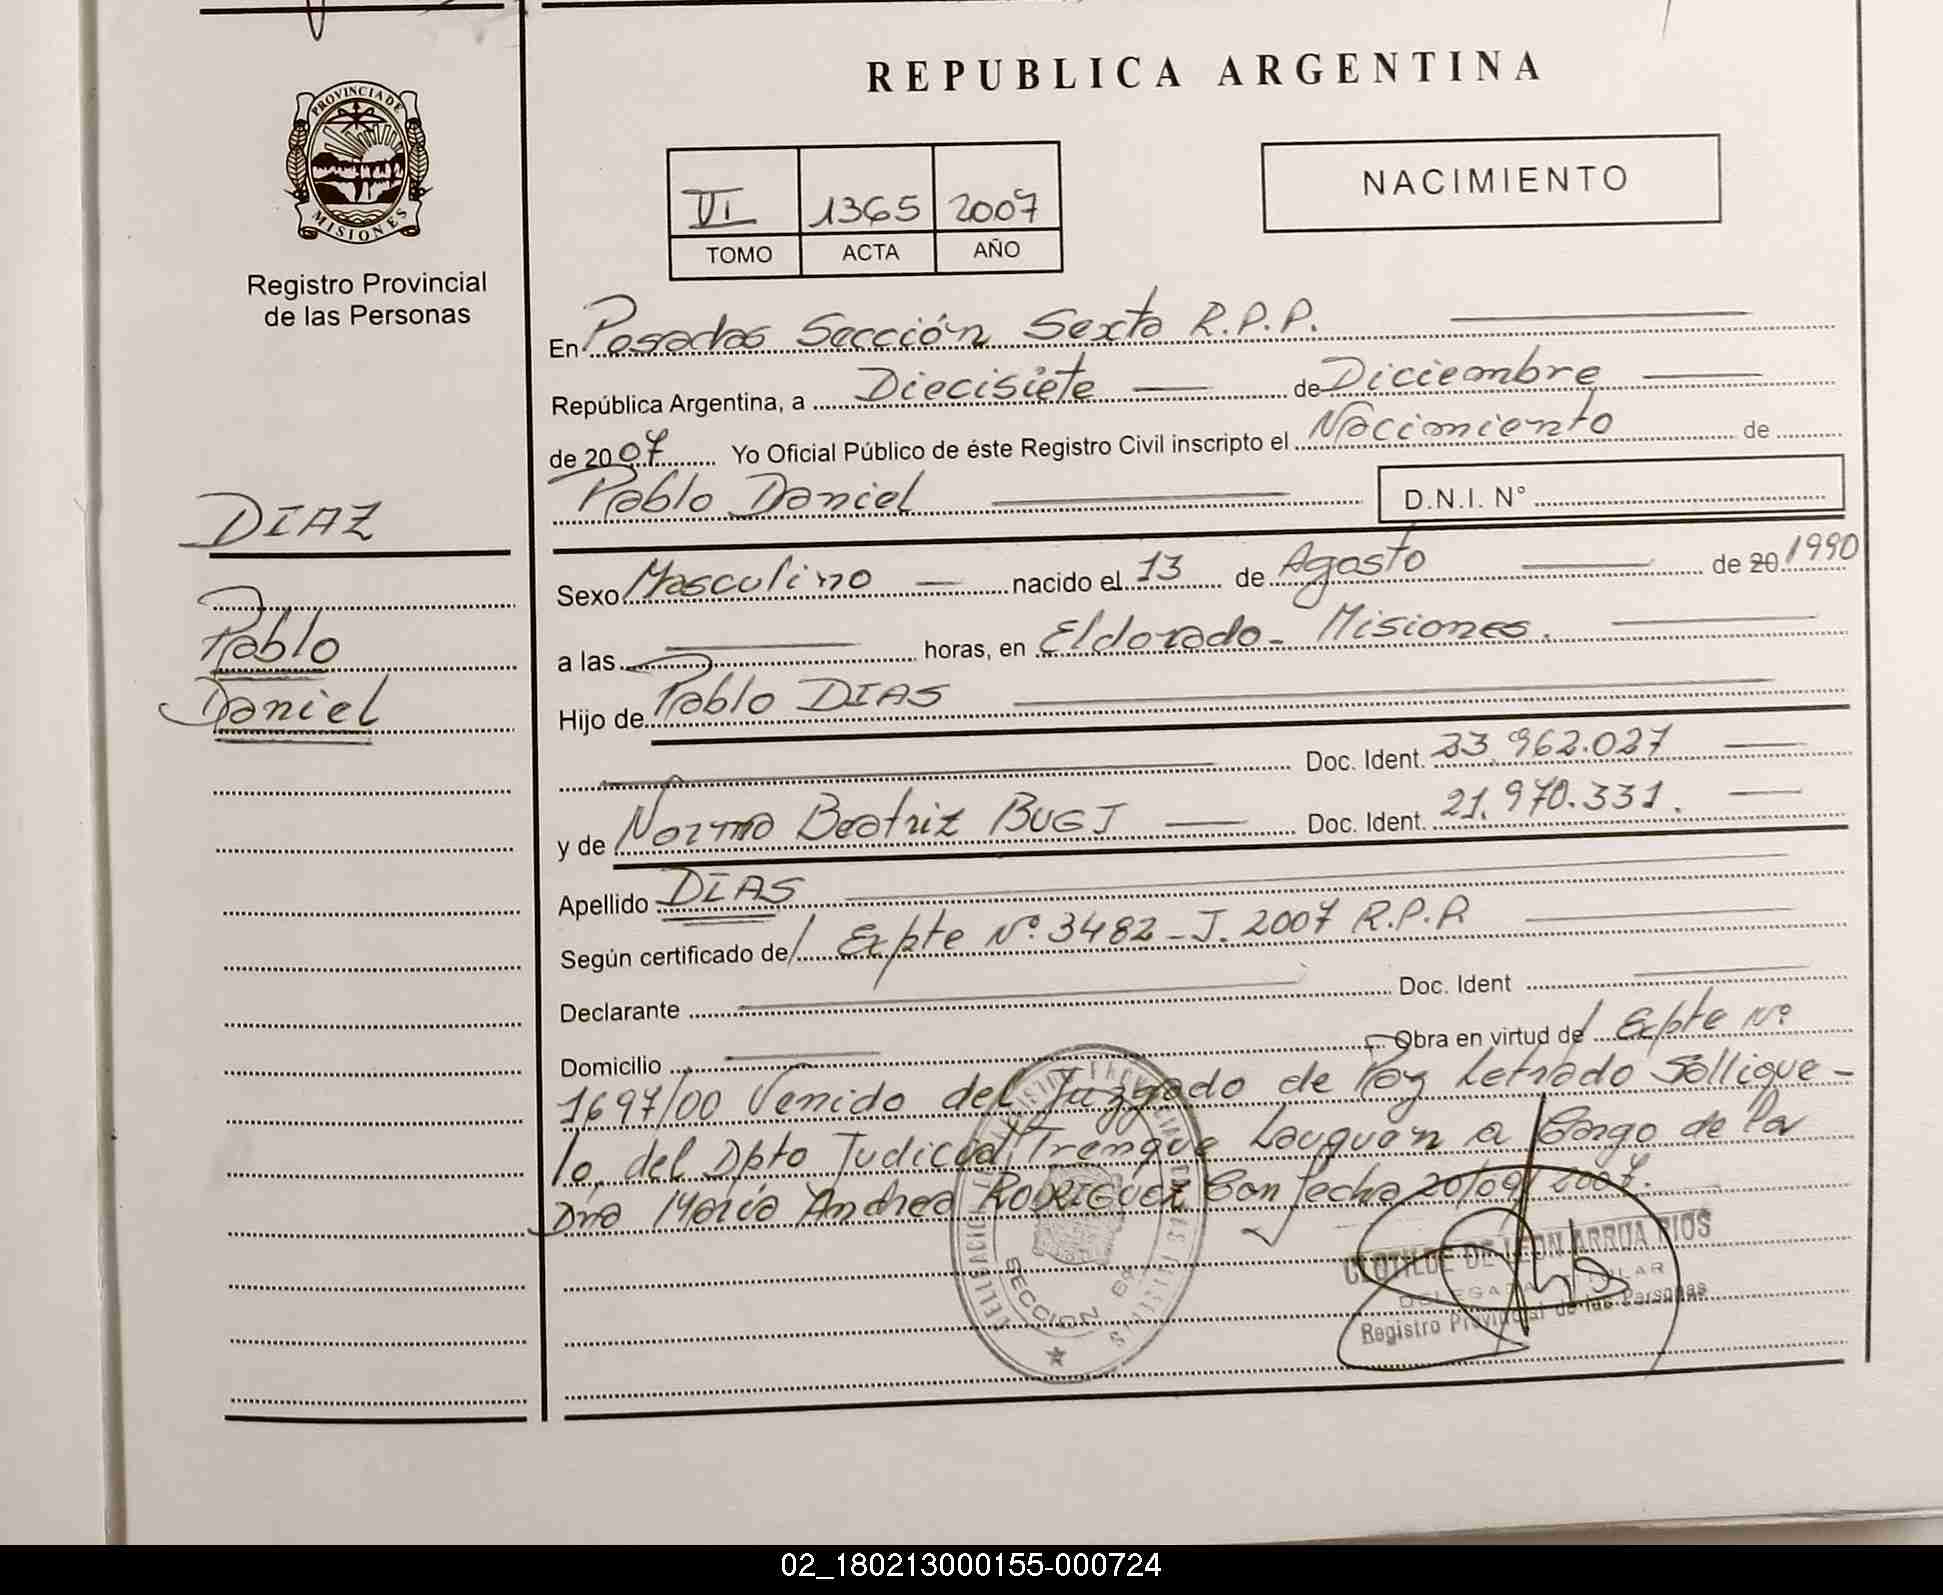 REPUBLICA ARGENTINA
PROVINCIA DE
MISIONES
Registro Provincial
de las Personas
VI 1365 2007
TOMO ACTA AÑO
NACIMIENTO
En Posadas Sección Sexta R.P.P.
República Argentina, a Diecisiete de Diciembre
de 2007 Yo Oficial Público de éste Registro Civil inscripto el Nacimiento de
Pablo Daniel D.N.I. N°
DIAZ
Pablo
Daniel
Sexo Masculino nacido el 13 de Agosto de 20 1990
a las horas, en Eldorado - Misiones.
Hijo de Pablo DIAS
Doc. Ident. 33.962.027
y de Norma Beatriz BUGJ Doc. Ident. 21.970.331.
Apellido DIAS
Según certificado de/ Expte Nº 3482-J. 2007 R.P.P.
Declarante Doc. Ident
Domicilio Obra en virtud de/ Expte Nº
1697/00 Venido del Juzgado de Paz Letrado Sallique-
lo, del Dpto Judicial Trenque Lauquen a Cargo de la
Dra María Andrea RODRIGUEZ Con fecha 20/09/2007.
SECCION 6ª
CLOTILDE DE LEON ARRUA RIOS
DELEGADA TITULAR
Registro Provincial de las Personas
02_180213000155-000724